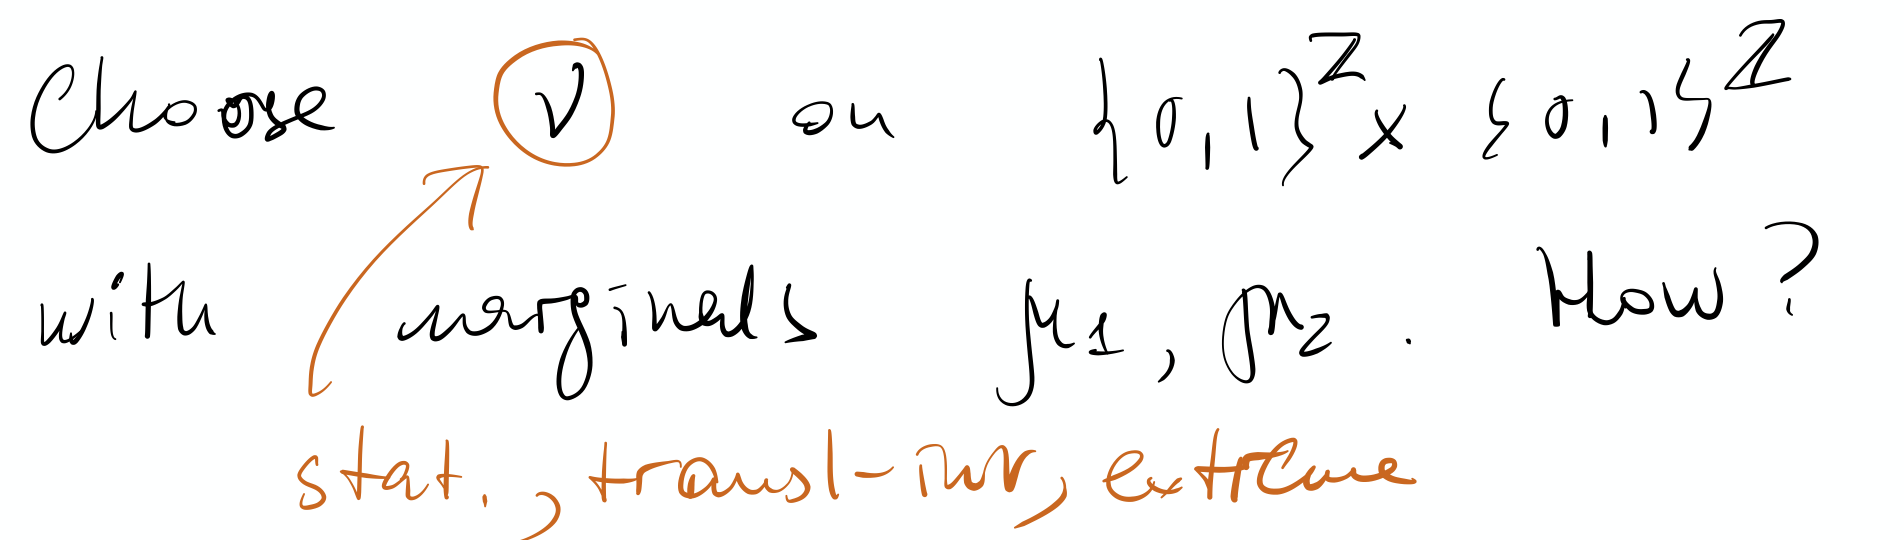 Choose ν on {0,1}^ℤ × {0,1}^ℤ
with marginals μ₁, μ₂. How?
stat., transl-inv, extreme